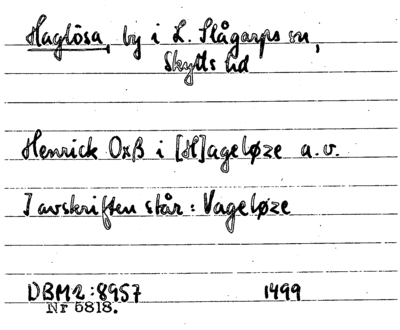 Haglösa, by i L. Slågarps sn,
Skytts hd
Henrick Oxß i [H]ageløze a.v.
I avskriften står: Vageløze
DBM2:8957 1499
Nr 5818.